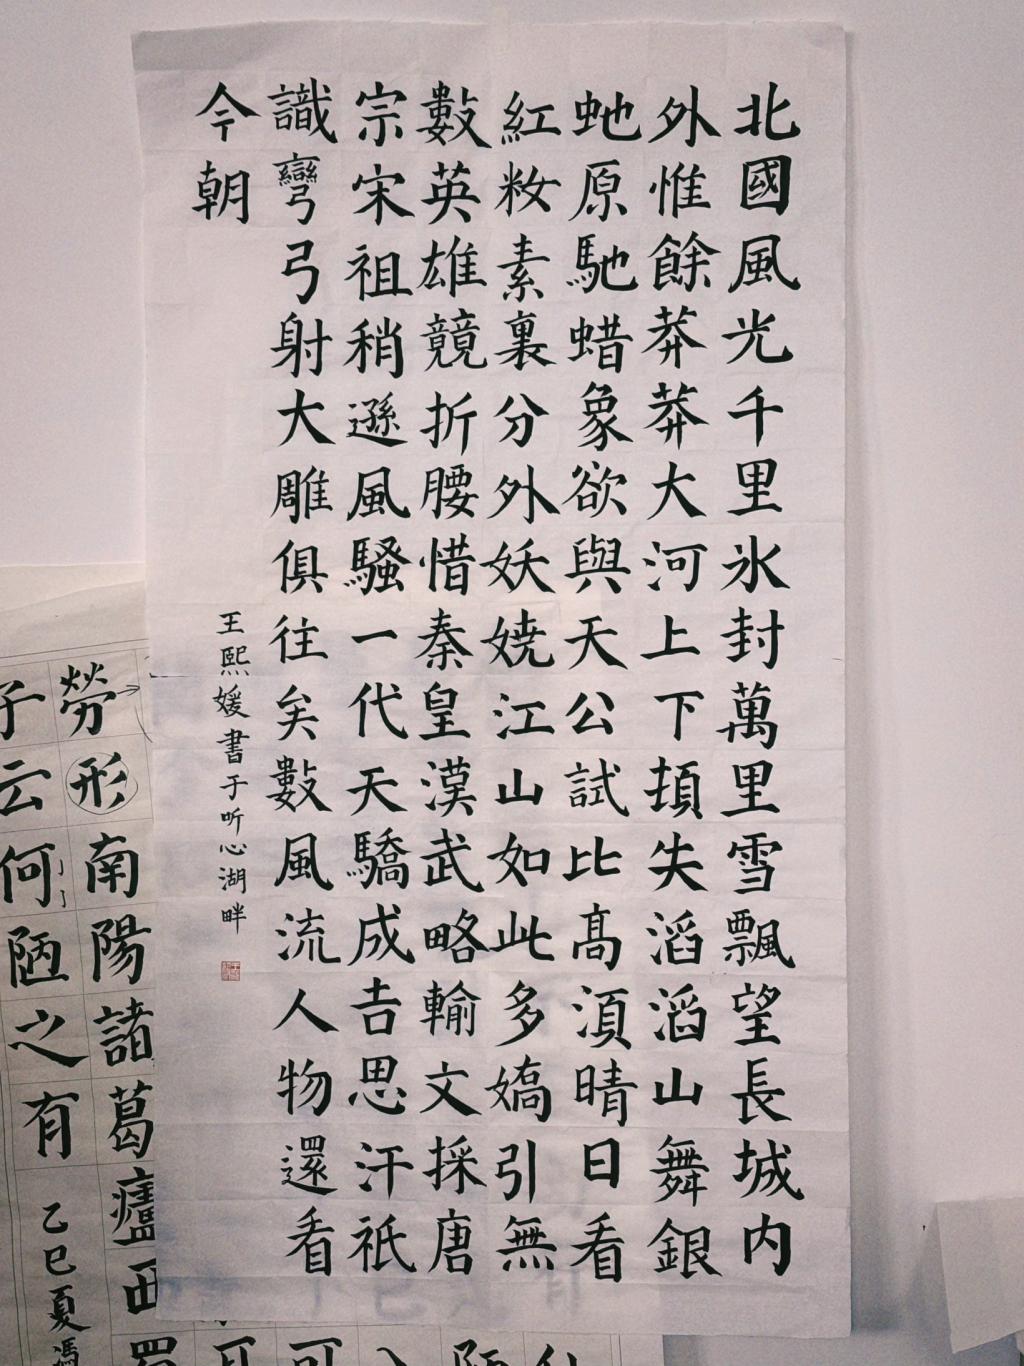 北國風光千里氷封萬里雪飄望長城内
外惟餘莽莽大河上下頓失滔滔山舞銀
虵原馳蜡象欲與天公試比髙須晴日看
紅籹素裏分外妖嬈江山如此多嬌引無
數英雄競折腰惜秦皇漢武略輸文採唐
宗宋祖稍遜風騷一代天驕成吉思汗祇
識彎弓射大雕俱往矣數風流人物還看
今朝
王熙媛書于听心湖畔
勞形南陽諸葛廬西蜀
子云何陋之有
乙巳夏馮